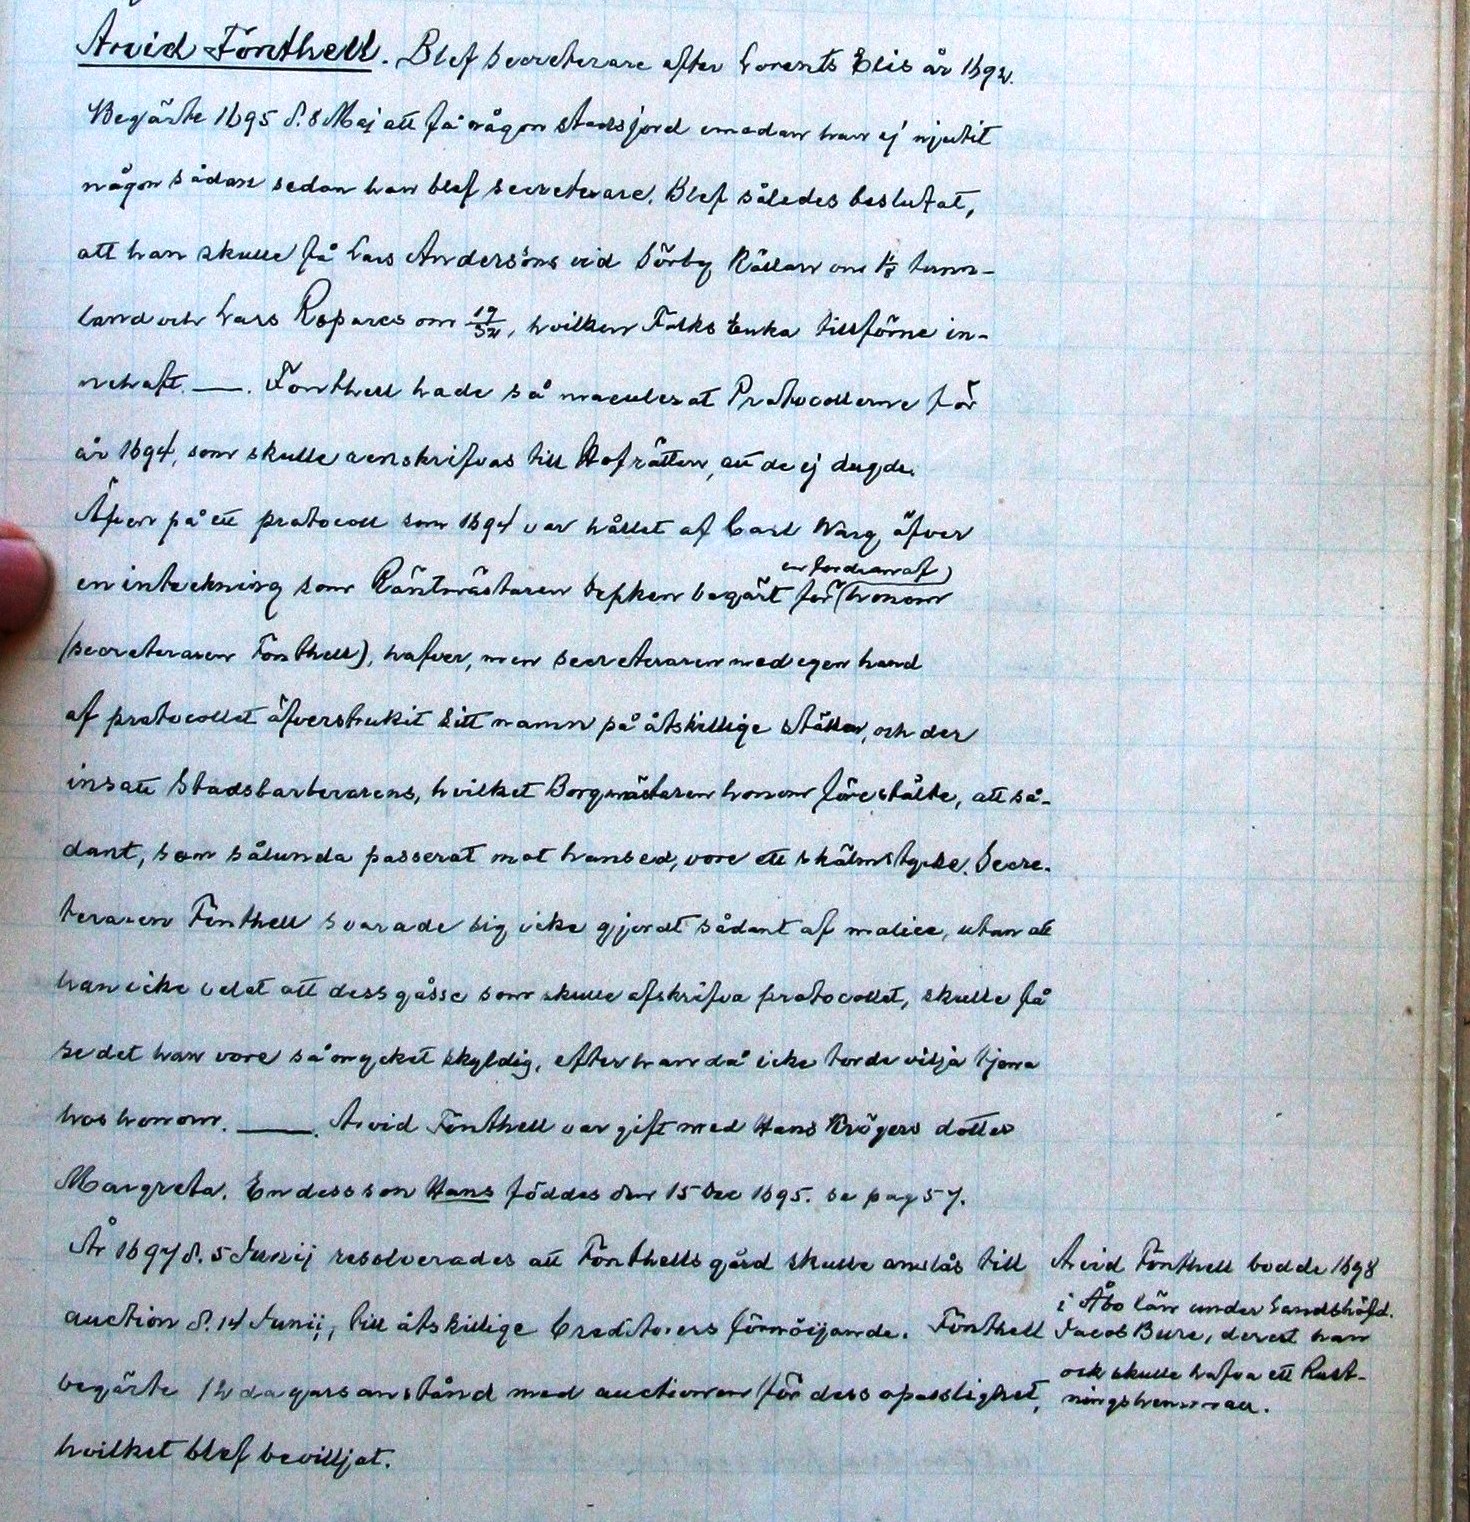 Arvid Fönthell. Blef Secreterare efter Lorents Elis år 1692.
Begärte 1695 d. 8 Maj att få någon Stadsjord emedan han ej njutit
någon sådan sedan han blef secreterare. Blef således beslutat,
att han skulle få Lars Andersöns vid Sörby Källan om 1/8 tunn-
land och Lars Repares om 19/32, hvilken Falks Enka tillförne in-
nehaft. —. Fönthell hade så maculerat Protocollerne för
år 1694, som skulle renskrifvas till Hofrätten, att de ej dugde.
Äfven på ett protocoll som 1694 var hållet af Carl Warg öfver
en inteckning som Räntmästaren Depken begärt för (en fordran af) honom
(secreteraren Fönthell), hafver, men Secreteraren med egen hand
af protocollet öfverstrukit Sitt namn på åtskillige Ställen, och der
insatt Stadsbarberarens, hvilket Borgmästaren honom förestälte, att så-
dant, som sålunda passerat mot hans ed, vore ett skälmstycke. Secre-
teraren Fönthell svarade sig icke gjordt sådant af malice, utan att
han icke velat att dess gåsse som skulle afskrifva protocollet, skulle få
se det han vore så mycket skyldig, efter han då icke torde vilja tjena
hos honom. —. Arvid Fönthell var gift med Hans Krögers dotter
Margreta. En dess son Hans föddes den 15 Dec 1695. se pag 57.
År 1697 d. 5 Junij resolverades att Fönthells gård skulle anslås till
auction d. 14 Junii, till åtskillige Creditorers förnöijande. Fönthell
begärte 12 dagars anstånd med auctionen för dess opasslighet,
hvilket blef bevilljat.
Arvid Fönthell bodde 1698
i Åbo län under Landshöfd.
Jacob Bure, derest han
ock skulle hafva ett Rust-
ningshemman.